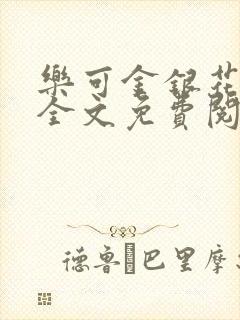 樂可金銀花
全文免費閱
德鲁巴里摩